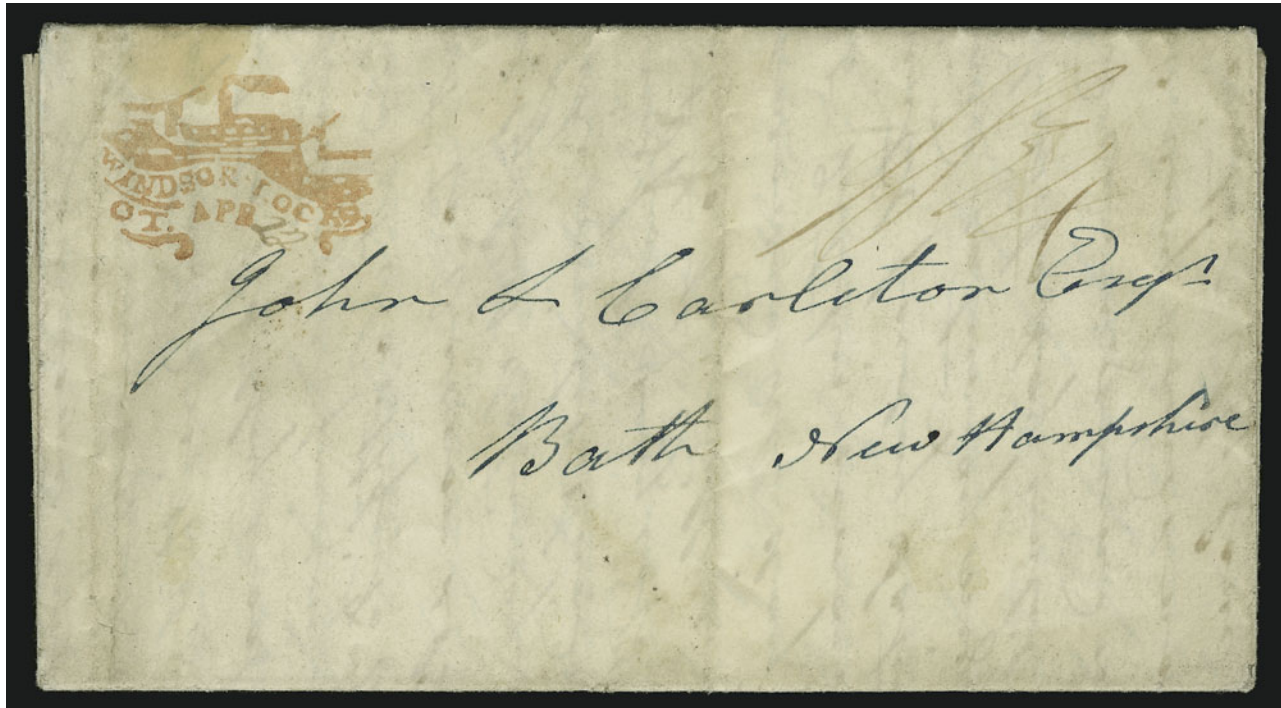 WINDSOR LOCKS
CT. APR
John L Carleton Esqr
Bath New Hampshire